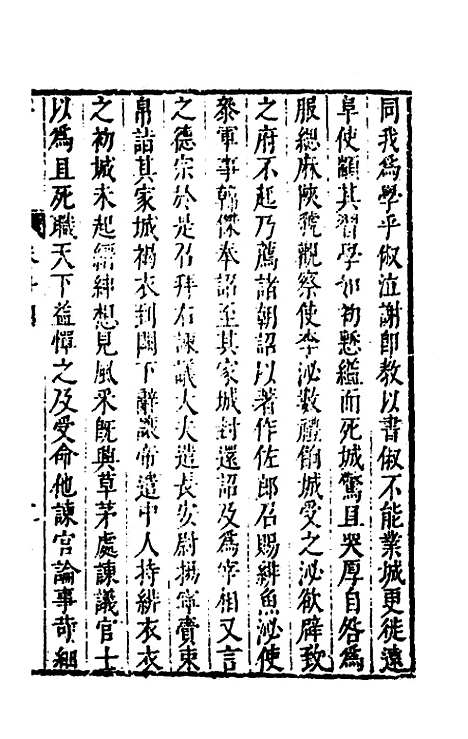 同我爲學乎俶泣謝即教以書俶不能業城更徙遠
阜使顓其習學如初慙縊而死城驚且哭厚自咎爲
服緦麻陝虢觀察使李泌數禮餉城受之泌欲辟致
之府不起乃薦諸朝詔以著作佐郎召賜緋魚泌使
叅軍事韓傑奉詔至其家城封還詔及爲宰相又言
之德宗於是召拜右諫議大夫遣長安尉楊寧賫束
帛詣其家城褐衣到闕下辭讓帝遣中人持緋衣衣
之初城未起縉紳想見風采旣興草茅處諫議官士
以爲且死職天下益憚之及受命他諫官論事苛細